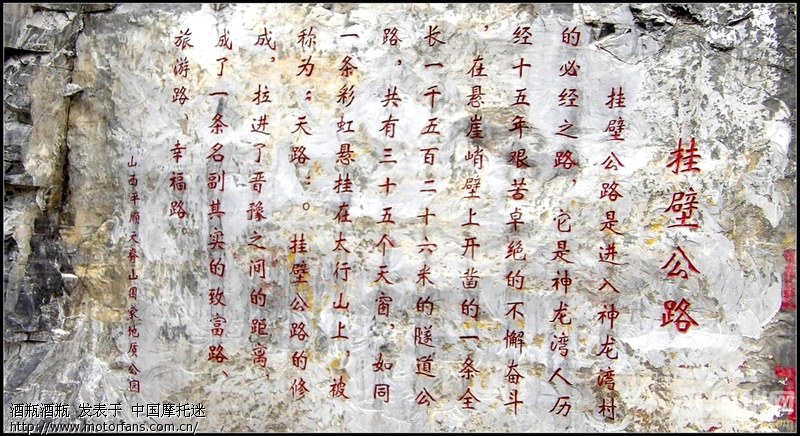 挂壁公路
挂壁公路是进入神龙湾村
的必经之路，它是神龙湾人历
经十五年艰苦卓绝的不懈奋斗
，在悬崖峭壁上开凿的一条全
长一千五百二十六米的隧道公
路，共有三十五个天窗，如同
一条彩虹悬挂在太行山上，被
称为：天路：。挂壁公路的修
成，拉进了晋豫之间的距离，
成了一条名副其实的致富路、
旅游路、幸福路。
山西平顺天脊山国家地质公园
酒瓶酒瓶 发表于 中国摩托迷
http://www.motorfans.com.cn/